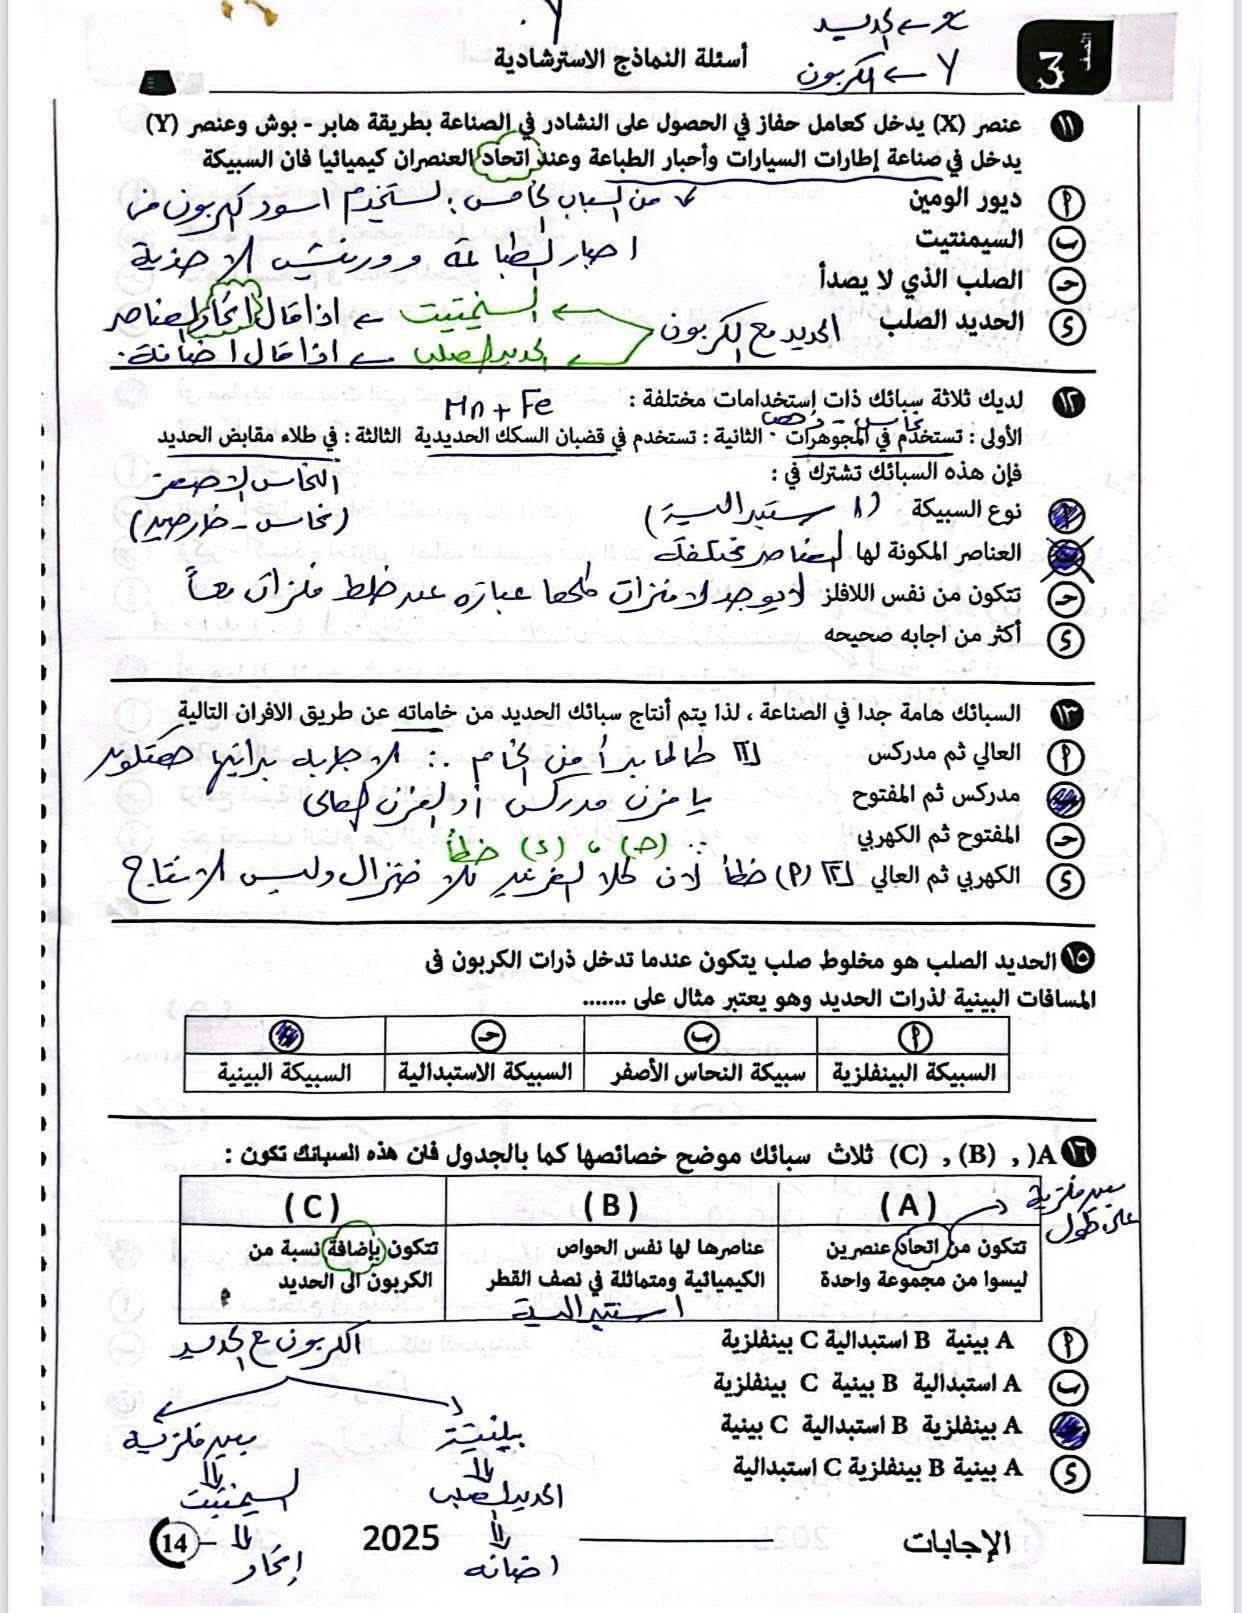 x ← الحديد
Y ← الكربون
أسئلة النماذج الاسترشادية
الصف 3
١١ عنصر (X) يدخل كعامل حفاز في الحصول على النشادر في الصناعة بطريقة هابر - بوش وعنصر (Y)
يدخل في صناعة إطارات السيارات وأحبار الطباعة وعند اتحاد العنصران كيميائيا فان السبيكة
أ ديور الومين
من الباب الخامس: نستخدم اسود كربون من
ب السيمنتيت
احبار الطباعة وورنيش الاحذية
حـ الصلب الذي لا يصدأ
د الحديد الصلب
الحديد مع الكربون
السيمنتيت ← اذا قال اتحاد العناصر
الحديد الصلب ← اذا قال اضافة.
١٢ لديك ثلاثة سبائك ذات إستخدامات مختلفة :
Mn + Fe
نحاس - ذهب
الأولى : تستخدم في المجوهرات . الثانية : تستخدم في قضبان السكك الحديدية الثالثة : في طلاء مقابض الحديد
فإن هذه السبائك تشترك في :
النحاس الاصفر
(نحاس - خارصين)
أ نوع السبيكة (استبدالية)
ب العناصر المكونة لها العناصر مختلفة
حـ تتكون من نفس اللافلز لا يوجد لافلزات كلها عبارة عن خلط فلزات معاً
د أكثر من اجابه صحيحه
١٣ السبائك هامة جدا في الصناعة ، لذا يتم أنتاج سبائك الحديد من خاماته عن طريق الافران التالية
أ العالي ثم مدركس ١] طالما بدأ من الخام ∴ الاجابة بدايتها هتكون
ب مدركس ثم المفتوح يا فرن مدركس أو الفرن العالى
حـ المفتوح ثم الكهربي ∴ (حـ) ، (د) خطأ
د الكهربي ثم العالي ٢] (أ) خطأ لان كلا الفرنين للاختزال وليس الانتاج
١٥ الحديد الصلب هو مخلوط صلب يتكون عندما تدخل ذرات الكربون فى
المسافات البينية لذرات الحديد وهو يعتبر مثال على .......
أ ب حـ د
السبيكة البينفلزية سبيكة النحاس الأصفر السبيكة الاستبدالية السبيكة البينية
١٦ A( , (B) , (C) ثلاث سبائك موضح خصائصها كما بالجدول فان هذه السبائك تكون :
(A) (B) (C)
بينفلزية
على طول
تتكون من اتحاد عنصرين عناصرها لها نفس الحواص تتكون بإضافة نسبة من
ليسوا من مجموعة واحدة الكيميائية ومتماثلة في نصف القطر الكربون الى الحديد
استبدالية
أ A بينية B استبدالية C بينفلزية
الكربون مع الحديد
ب A استبدالية B بينية C بينفلزية
حـ A بينفلزية B استبدالية C بينية
بينية
بينفلزية
د A بينية B بينفلزية C استبدالية
الحديد الصلب
السيمنتيت
اضافه
إتحاد
الإجابات
2025
14